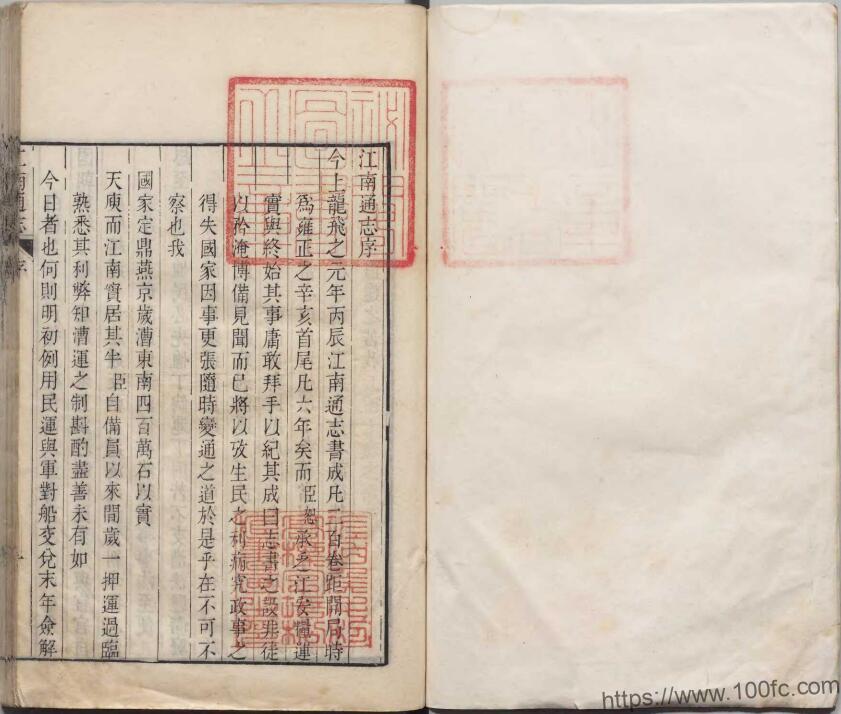 江南通志序
今上龍飛之元年丙辰江南通志書成凡二百卷距開局時
爲雍正之辛亥首尾凡六年矣而臣恕承乏江安糧運
實與終始其事庸敢拜手以紀其成曰志書之設非徒
以矜淹博備見聞而已將以攷生民之利病究政事之
得失國家因事更張隨時變通之道於是乎在不可不
察也我
國家定鼎燕京歲漕東南四百萬石以實
天庾而江南實居其半臣自備員以來間歲一押運過臨
熟悉其利弊知漕運之制斟酌盡善未有如
今日者也何則明初例用民運與軍對船交兌末年僉解
江南通志 序 一
https://www.100fc.com